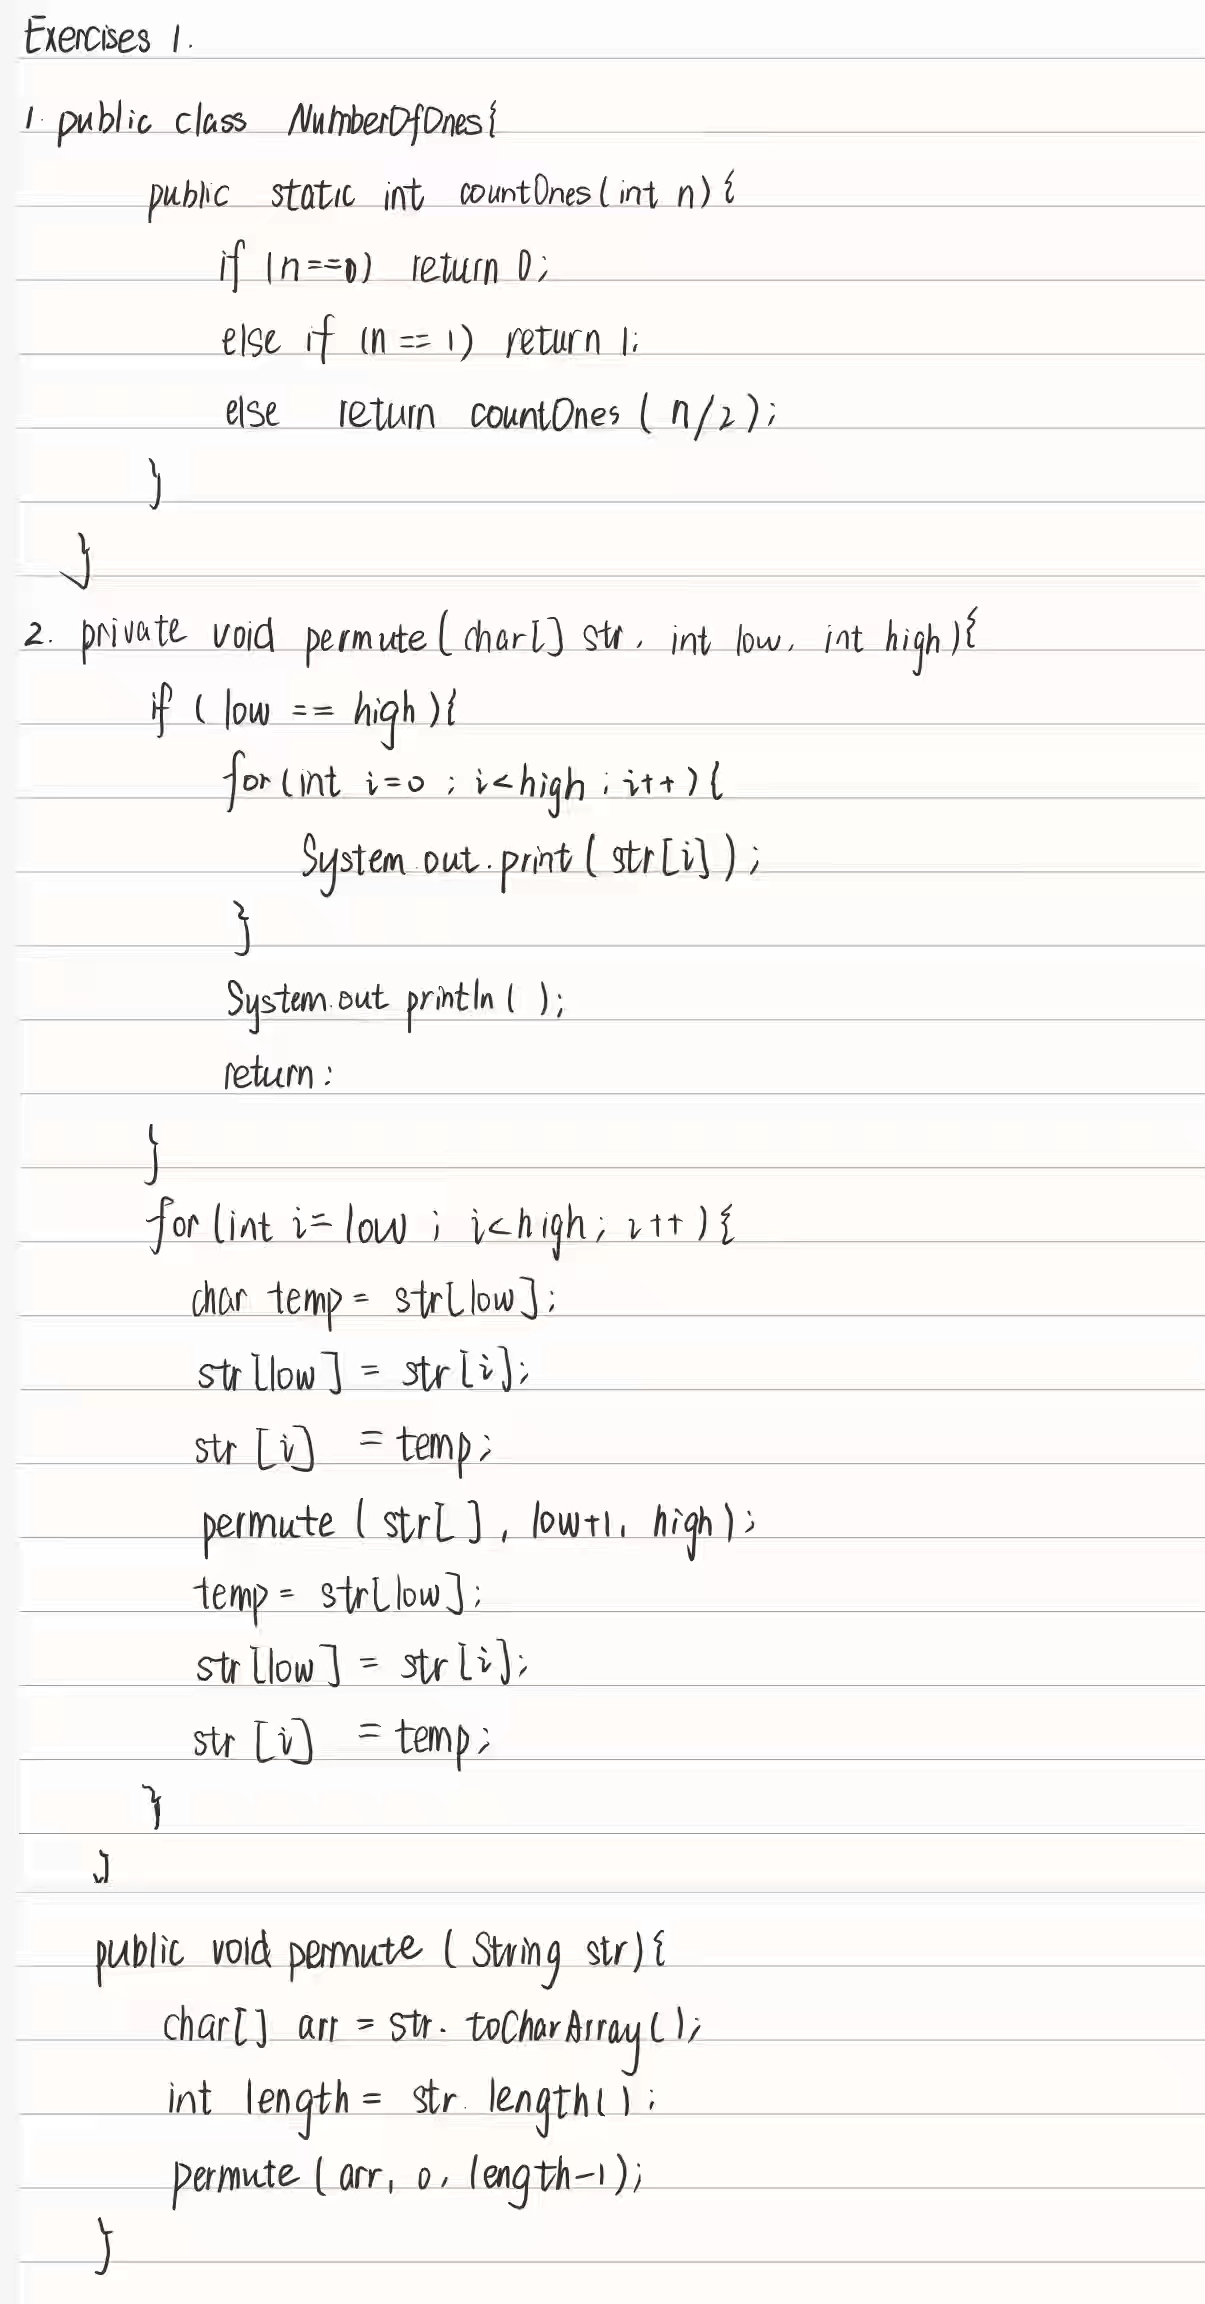 Exercises 1.
1. public class NumberOfOnes{
public static int countOnes(int n){
if (n==0) return 0;
else if (n == 1) return 1;
else return countOnes (n/2);
}
}
2. private void permute(char[] str, int low, int high){
if ( low == high){
for(int i=0 ; i<high ; i++){
System.out.print( str[i]);
}
System.out println( );
return;
}
for (int i= low ; i<high; i++){
char temp = str[low];
str[low] = str[i];
str [i] = temp;
permute ( str[ ], low+1, high);
temp = str[low];
str[low] = str[i];
str [i] = temp;
}
}
public void permute ( String str){
char[] arr = str. toCharArray();
int length = str. length();
permute ( arr, 0, length-1);
}